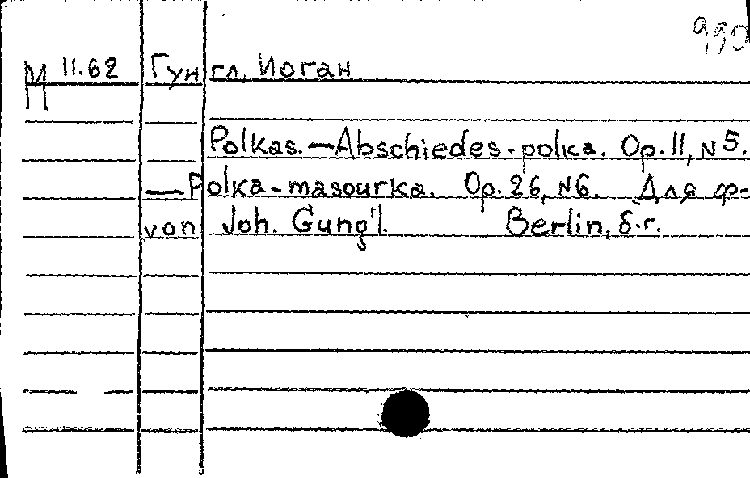 990
М 11.62 Гунгл, Иоган
Polkas. — Abschiedes-polka. Op. 11, N 5.
— Polka-masourka. Op. 26, N6. Для ф-
von Joh. Gung'l. Berlin, б.г.